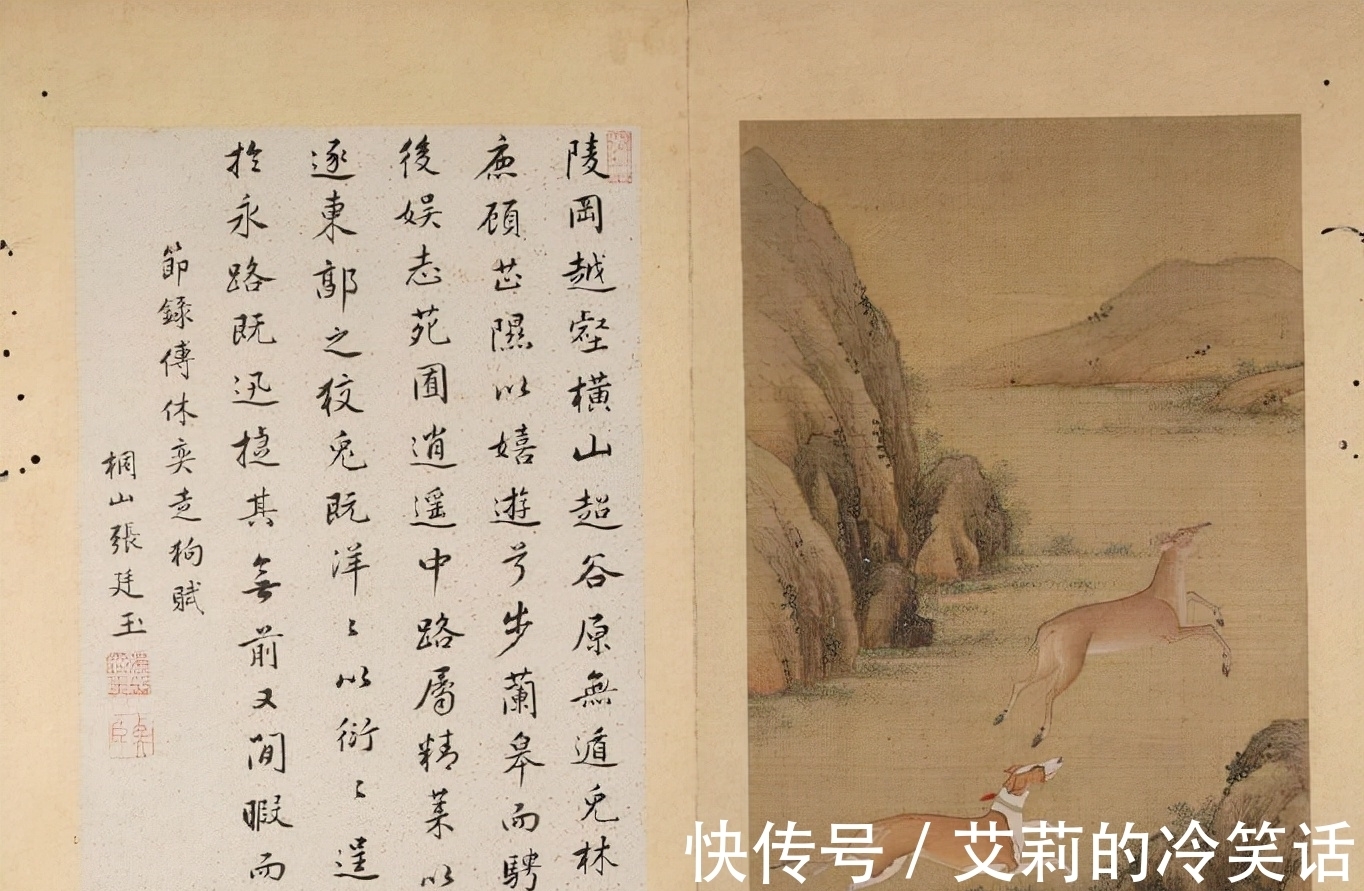 陵岡越壑橫山超谷原無遁兔林
鹿顧芷隰以嬉遊兮步蘭皋而騁
後娛志苑囿逍遥中路屬精萊以
逐東郭之狡兔既洋〻以衍〻逞
於永路既迅捷其無前又閒暇而
節錄傅休奕走狗賦
桐山張廷玉
快传号 / 艾莉的冷笑话